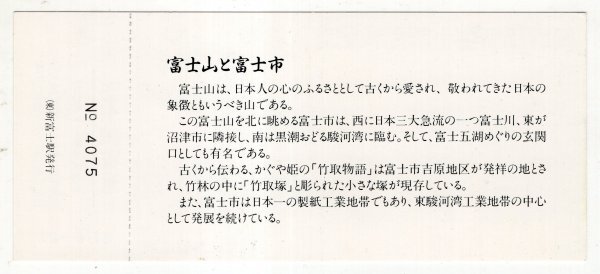 富士山と富士市
富士山は、日本人の心のふるさととして古くから愛され、敬われてきた日本の
象徴ともいうべき山である。
この富士山を北に眺める富士市は、西に日本三大急流の一つ富士川、東が
沼津市に隣接し、南は黒潮おどる駿河湾に臨む。そして、富士五湖めぐりの玄関
口としても有名である。
古くから伝わる、かぐや姫の「竹取物語」は富士市吉原地区が発祥の地とさ
れ、竹林の中に「竹取塚」と彫られた小さな塚が現存している。
また、富士市は日本一の製紙工業地帯でもあり、東駿河湾工業地帯の中心
として発展を続けている。
№ 4075
(東)新富士駅発行